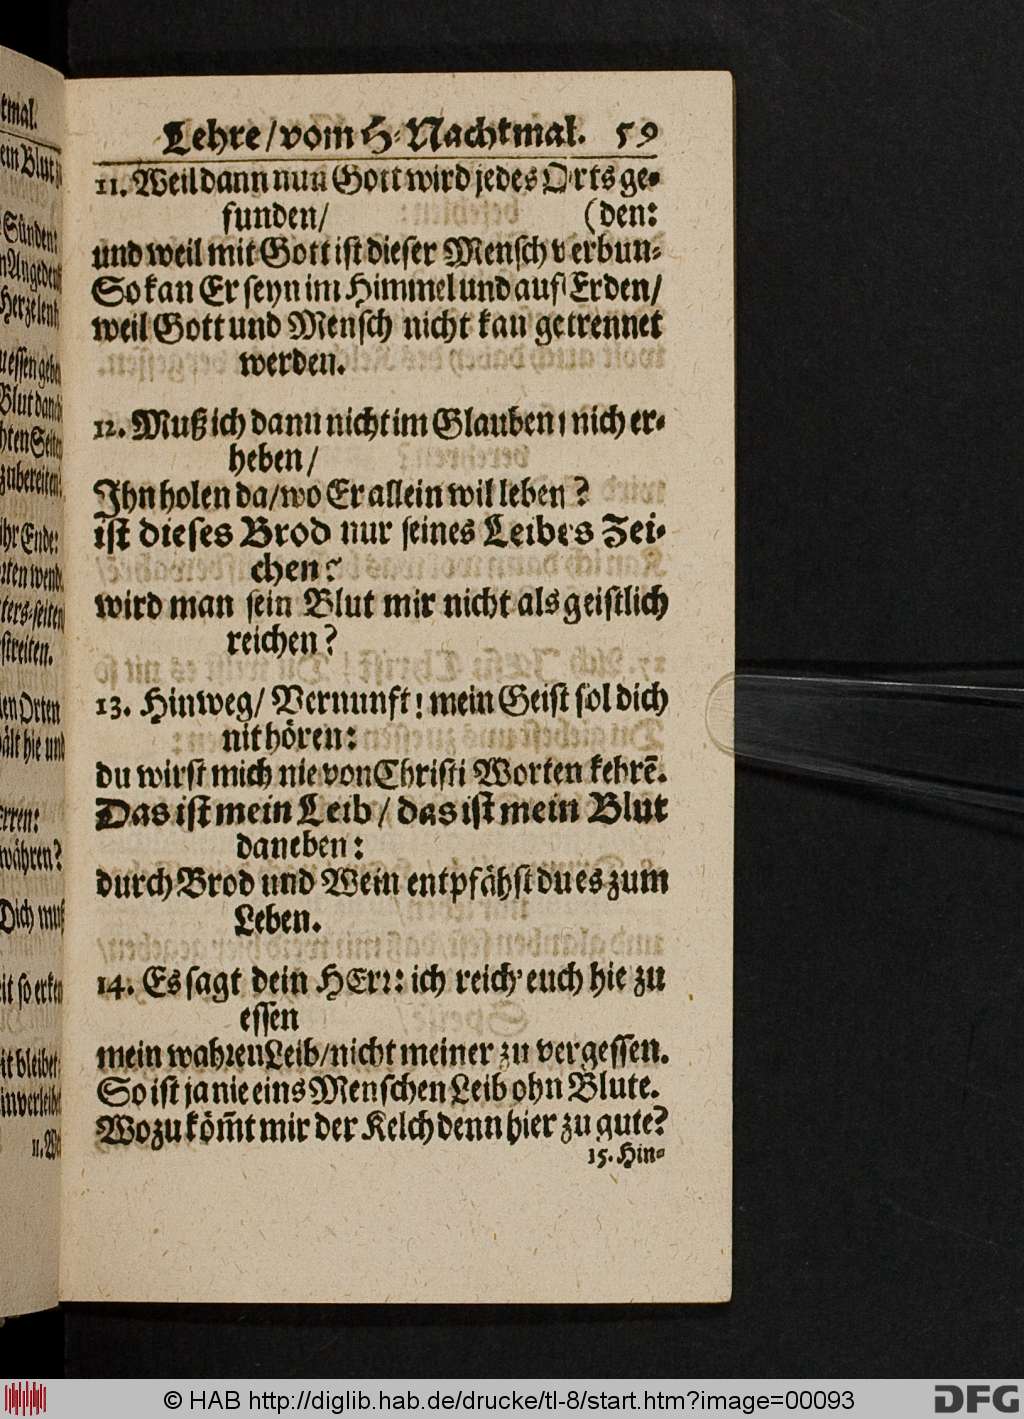 Lehre/vom H. Nachtmal. 59
11. Weil dann nun Gott wird jedes Orts ge-
funden/ (den:
und weil mit Gott ist dieser Mensch verbun-
So kan Er seyn im Himmel und auf Erden/
weil Gott und Mensch nicht kan getrennet
werden.
12. Muß ich dann nicht im Glauben mich er-
heben/
Ihn holen da/wo Er allein wil leben?
ist dieses Brod nur seines Leibes Zei-
chen?
wird man sein Blut mir nicht als geistlich
reichen?
13. Hinweg/ Vernunft! mein Geist sol dich
nit hören:
du wirst mich nie von Christi Worten kehrē.
Das ist mein Leib/ das ist mein Blut
daneben:
durch Brod und Wein entpfähst du es zum
Leben.
14. Es sagt dein HErr: ich reich' euch hie zu
essen
mein wahren Leib/nicht meiner zu vergessen.
So ist ja nie eins Menschen Leib ohn Blute.
Wozu köm̃t mir der Kelch denn hier zu gute?
15. Hin-
tmal.
ein Blut
Sünden:
Herzelent
essen gebe
ihr Ende:
streiten.
Orten
hält hie und
währen?
Dich muß
it so erken
it bleibet
11. We
© HAB http://diglib.hab.de/drucke/tl-8/start.htm?image=00093
DFG